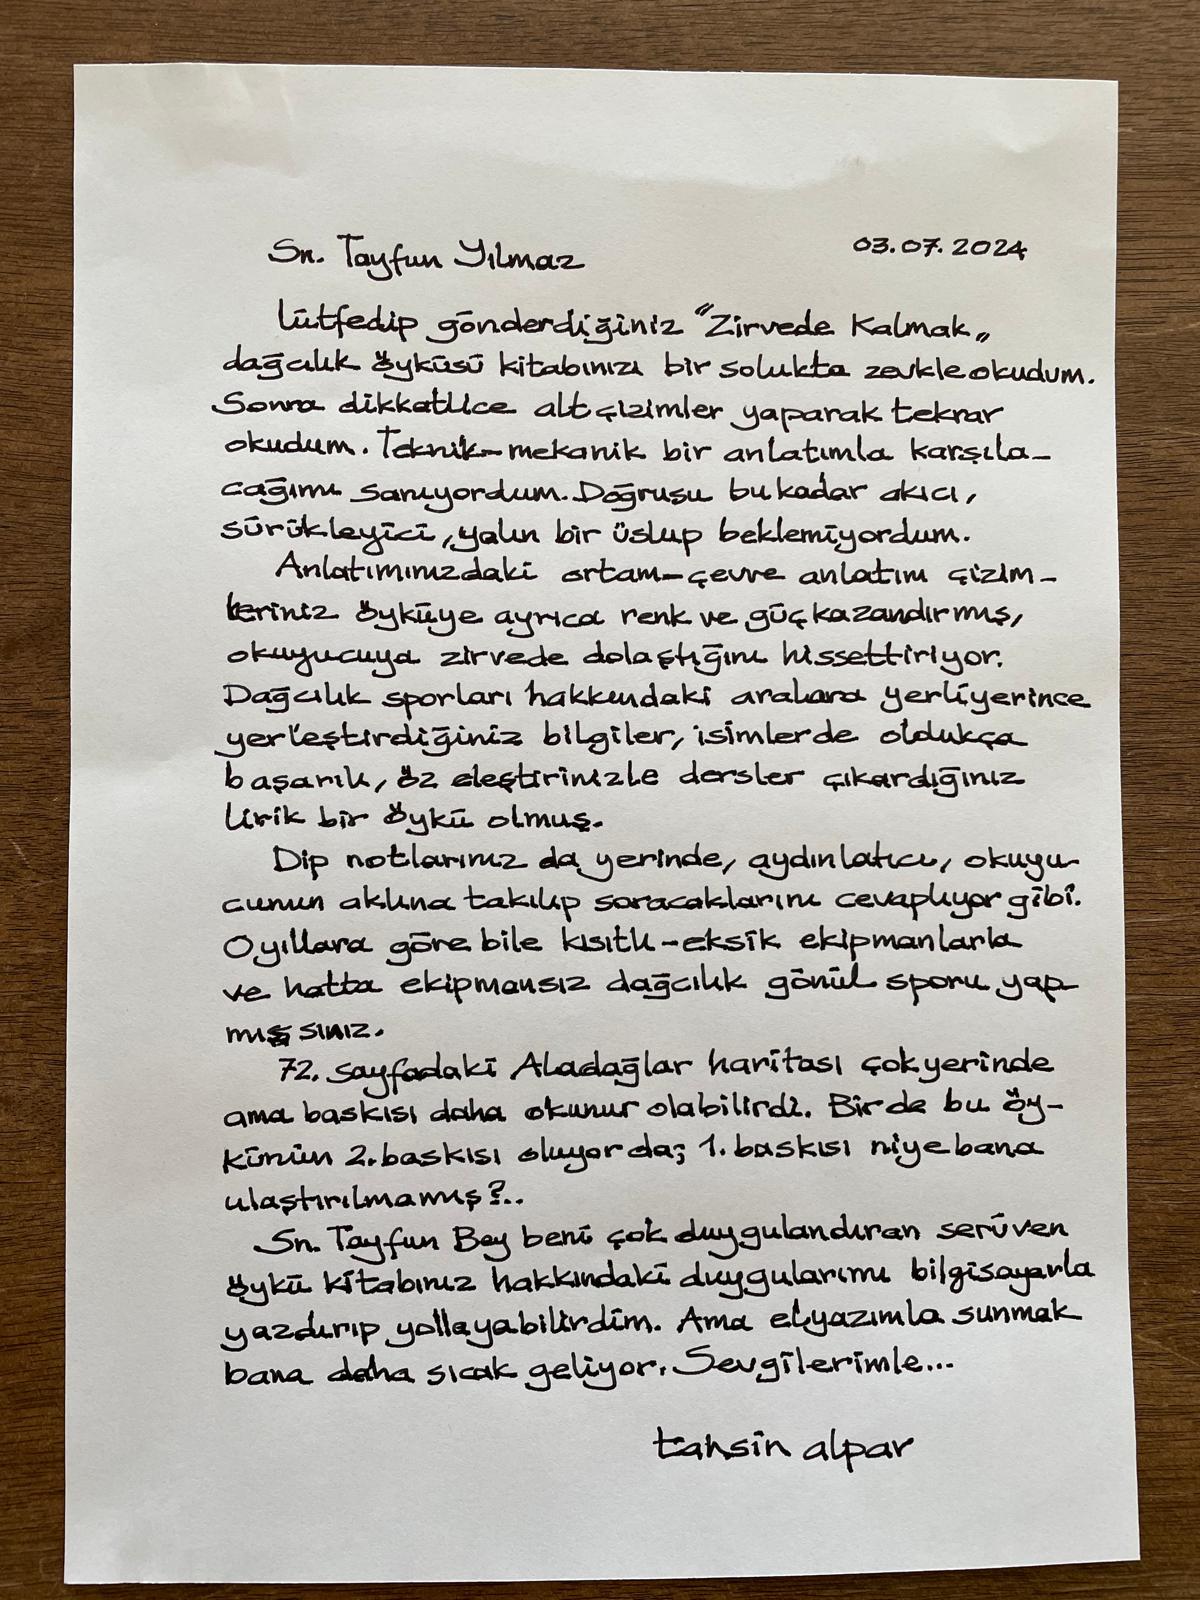 Sn. Tayfun Yılmaz 03.07.2024
lütfedip gönderdiğiniz "Zirvede Kalmak„
dağcılık öyküsü kitabınızı bir solukta zevkle okudum.
Sonra dikkatlice alt çizimler yaparak tekrar
okudum. Teknik-mekanik bir anlatımla karşıla-
cağımı sanıyordum. Doğrusu bu kadar akıcı,
sürükleyici, yalın bir üslup beklemiyordum.
Anlatımınızdaki ortam-çevre anlatım çizim-
leriniz öyküye ayrıca renk ve güç kazandırmış,
okuyucuya zirvede dolaştığını hissettiriyor.
Dağcılık sporları hakkındaki aralara yerliyerince
yerleştirdiğiniz bilgiler, isimlerde oldukça
başarılı, öz eleştirinizle dersler çıkardığınız
lirik bir öykü olmuş.
Dip notlarınız da yerinde, aydınlatıcı, okuyu
cunun aklına takılıp soracaklarını cevaplıyor gibi.
O yıllara göre bile kısıtlı-eksik ekipmanlarla
ve hatta ekipmansız dağcılık gönül sporu yap
mışsınız.
72. sayfadaki Aladağlar haritası çok yerinde
ama baskısı daha okunur olabilirdi. Bir de bu öy-
künün 2. baskısı oluyor da; 1. baskısı niye bana
ulaştırılmamış?..
Sn. Tayfun Bey beni çok duygulandıran serüven
öykü kitabınız hakkındaki duygularımı bilgisayarla
yazdırıp yollayabilirdim. Ama elyazımla sunmak
bana daha sıcak geliyor. Sevgilerimle...
tahsin alpar